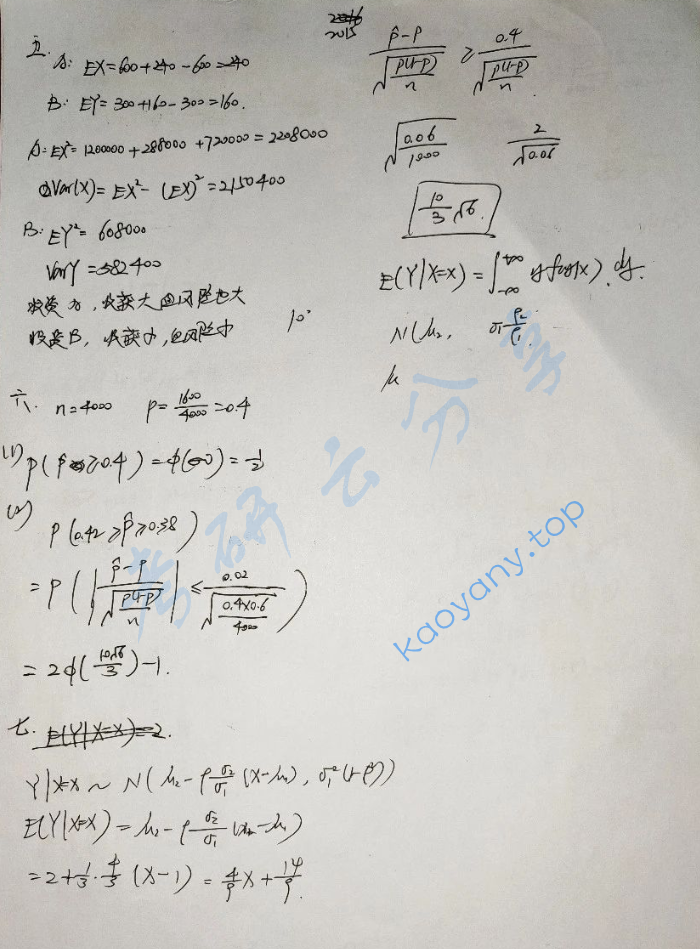 2015
五.
A: EX=600+240-600=240
B: EY=300+160-300=160.
A: EX²=1200000+288000+720000=2208000
Var(X)=EX²-(EX)²=2150400
B: EY²=608000
VarY=582400
投资B,
10
六. n=4000 p=1600/4000=0.4
(1) P(p̂≥0.4)=Φ(0)=1/2
(2)
P(0.42≥p̂≥0.38)
=P(|(p̂-p)/√(p(1-p)/n)|≤0.02/√(0.4×0.6/4000))
=2Φ(10√6/3)-1.
七. E(Y|X=x)=2.
Y|X=x~N(μ₂-ρσ₂/σ₁(x-μ₁), σ₁²(1-ρ²))
E(Y|X=x)=μ₂-ρσ₂/σ₁(x-μ₁)
=2+1/3·4/3(x-1)=4/9x+14/9.
(p̂-p)/√(p(1-p)/n)≥0.4/√(p(1-p)/n)
√(0.06/1000) 2/√0.06
10/3√6.
E(Y|X=x)=∫₋∞⁺∞ y f(y|x).dy.
N(μ₂,
μ
考研云分享
kaoyany.top